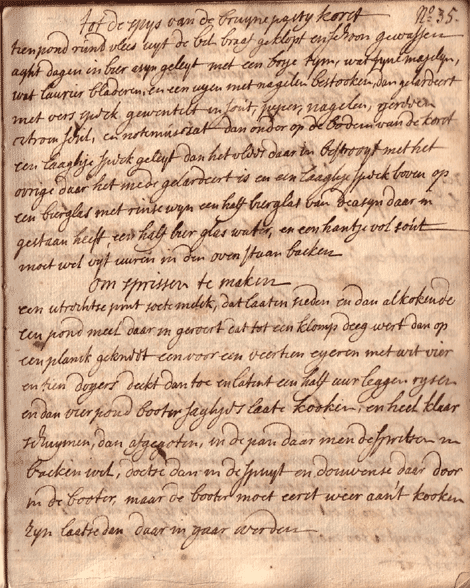 tot de spys van de bruyne pastykorst No 35.
tien pond rund vlees uyt de bil braaf geklopt en schoon gewassen
aght dagen in bier asyn geleyt met een bosje tym,
wat laurier bladeren, en een uyen met nagelen bestooken, dan gelardeert
met vers speck, gewentelt in sout, peper, nagelen,
sitroen schil, en notemuscaat dan onder op de bodem van de korst
een laaghje speck geleyt dan het vlees daar in bestrooyt met het
ovrige daar het mede gelardeert is en een laaghje speck boven op
een bierglas met rinse wyn een half bierglas van de asyn daar in
gestaan heeft, een half bier glas water, en een hantje vol sout
moet wel vyf uuren in den oven staan backen
Om sprissen te maken
een utrechtse pint soete melck, dat laaten sieden en dan al kokende
een pond meel daar in geroert tat tot een klomp deeg wert dan op
een planck geknedt een voor een veertien eyeren met wit vier
en tien doyers deckt dan toe en laat een half uur leggen rysen
en dan vier pond booter saghjes laate kooken, en heel klaar
schuymen, dan afgegoten, in de pan daar men de spritsen in
backen wil, doetse dan in de spuyt en douwense daar door
in de booter, maar de booter moet eerst weer aan't kooken
zyn laatse dan daar in gaar werden